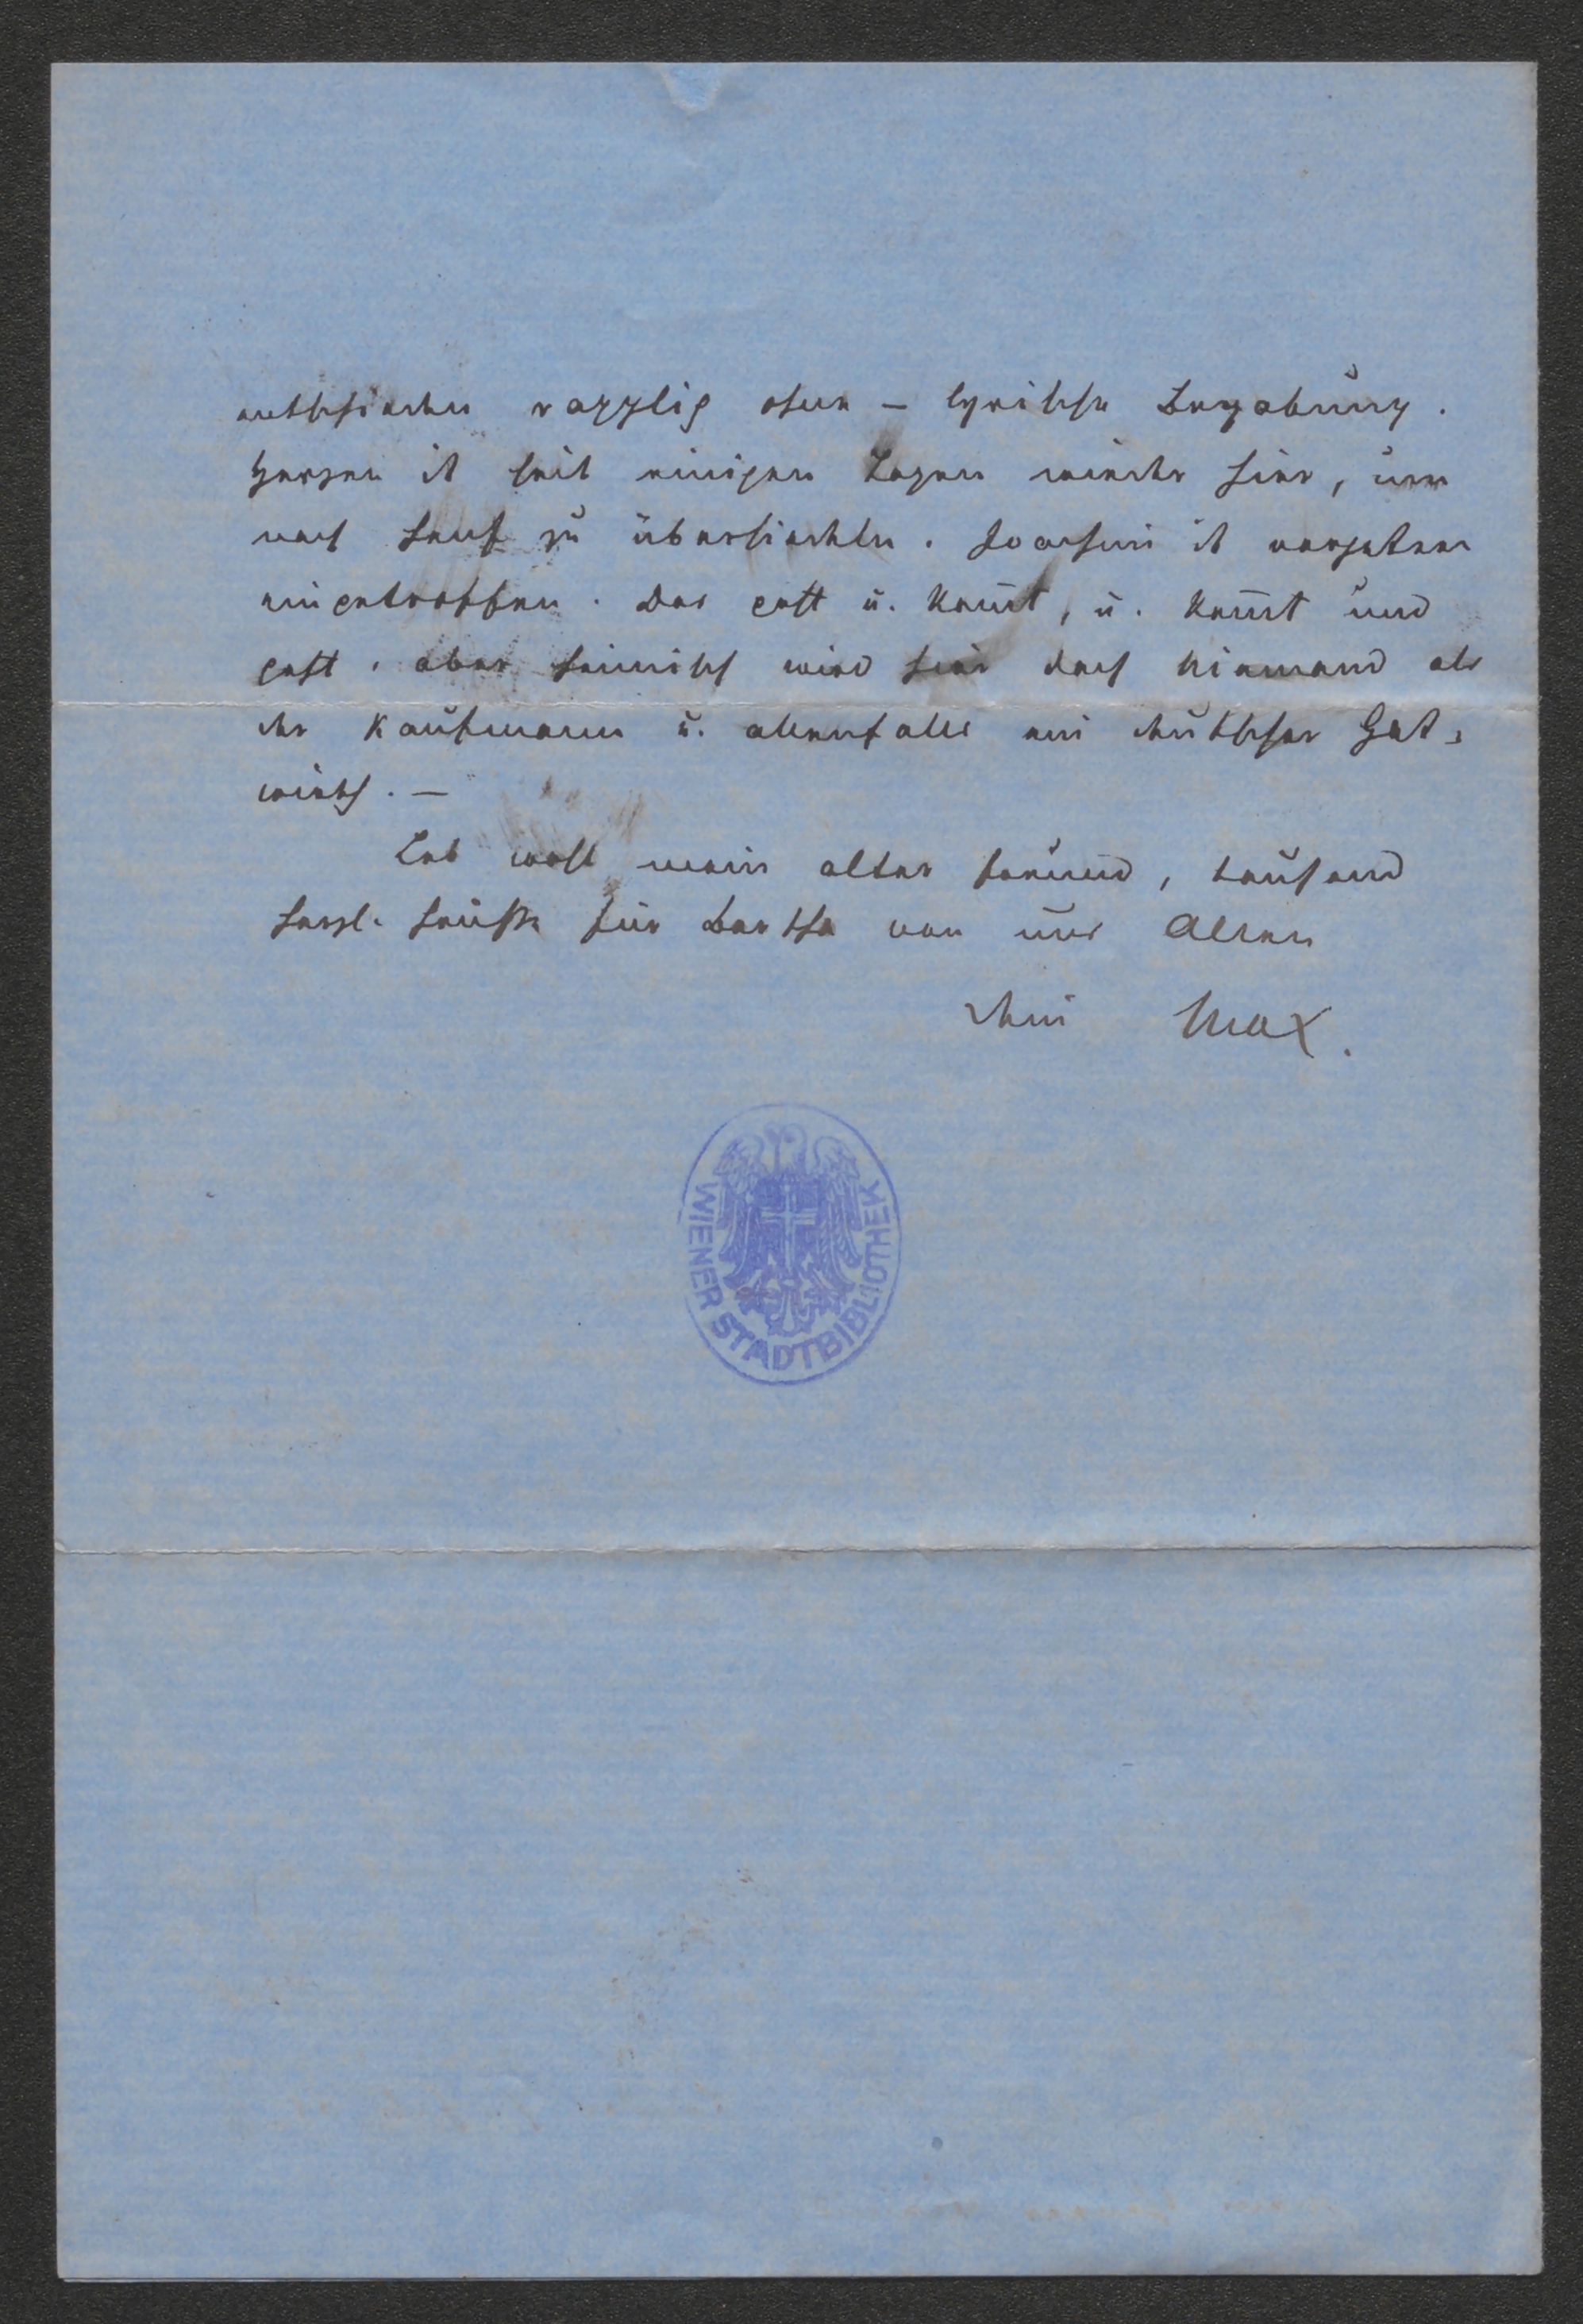 entschieden rapplig ohne – lyrische Begabung.
Herzen ist seit einigen Tagen wieder hier, um
nach Genf zu übersiedeln. Joachim ist vorgestern
eingetroffen. Das geht u. kom̄t, u. kom̄t und
geht, aber heimisch wird hier doch Niemand als
der Kaufmann u. allenfalls ein deutscher Gast-
wirth. –
Leb wohl mein alter Freund, tausend
herzl. Grüße für Bertha von uns Allen
Dein Max.
WIENER STADTBIBLIOTHEK